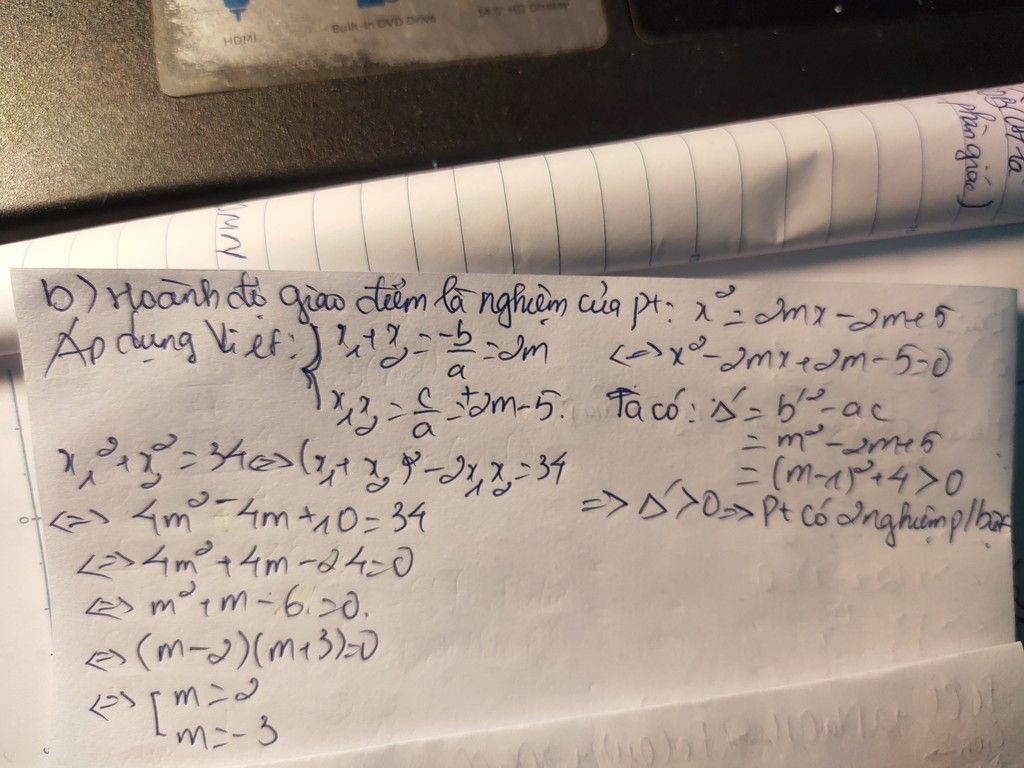 HDMI
Built-in DVD Drive
phân giác)
b) Hoành độ giao điểm là nghiệm của pt: x² = 2mx - 2m + 5
<=> x² - 2mx + 2m - 5 = 0
Ta có: Δ' = b'² - ac
= m² - 2m + 5
= (m - 1)² + 4 > 0
=> Δ' > 0 => Pt có 2 nghiệm p/biệt
Áp dụng Viet: { x₁ + x₂ = -b/a = 2m
x₁x₂ = c/a = +2m - 5.
x₁² + x₂² = 34 <=> (x₁ + x₂)² - 2x₁x₂ = 34
<=> 4m² - 4m + 10 = 34
<=> 4m² + 4m - 24 = 0
<=> m² + m - 6 = 0.
<=> (m - 2)(m + 3) = 0
<=> [ m = 2
m = -3